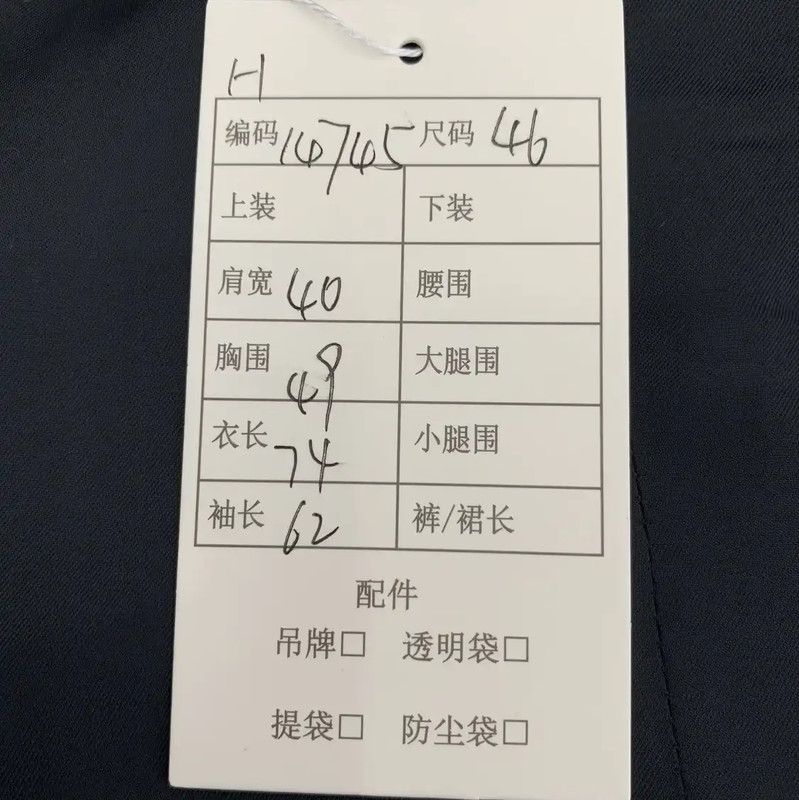 H
编码 14745 尺码 46
上装 下装
肩宽 40 腰围
胸围 49 大腿围
衣长 74 小腿围
袖长 62 裤/裙长
配件
吊牌□ 透明袋□
提袋□ 防尘袋□